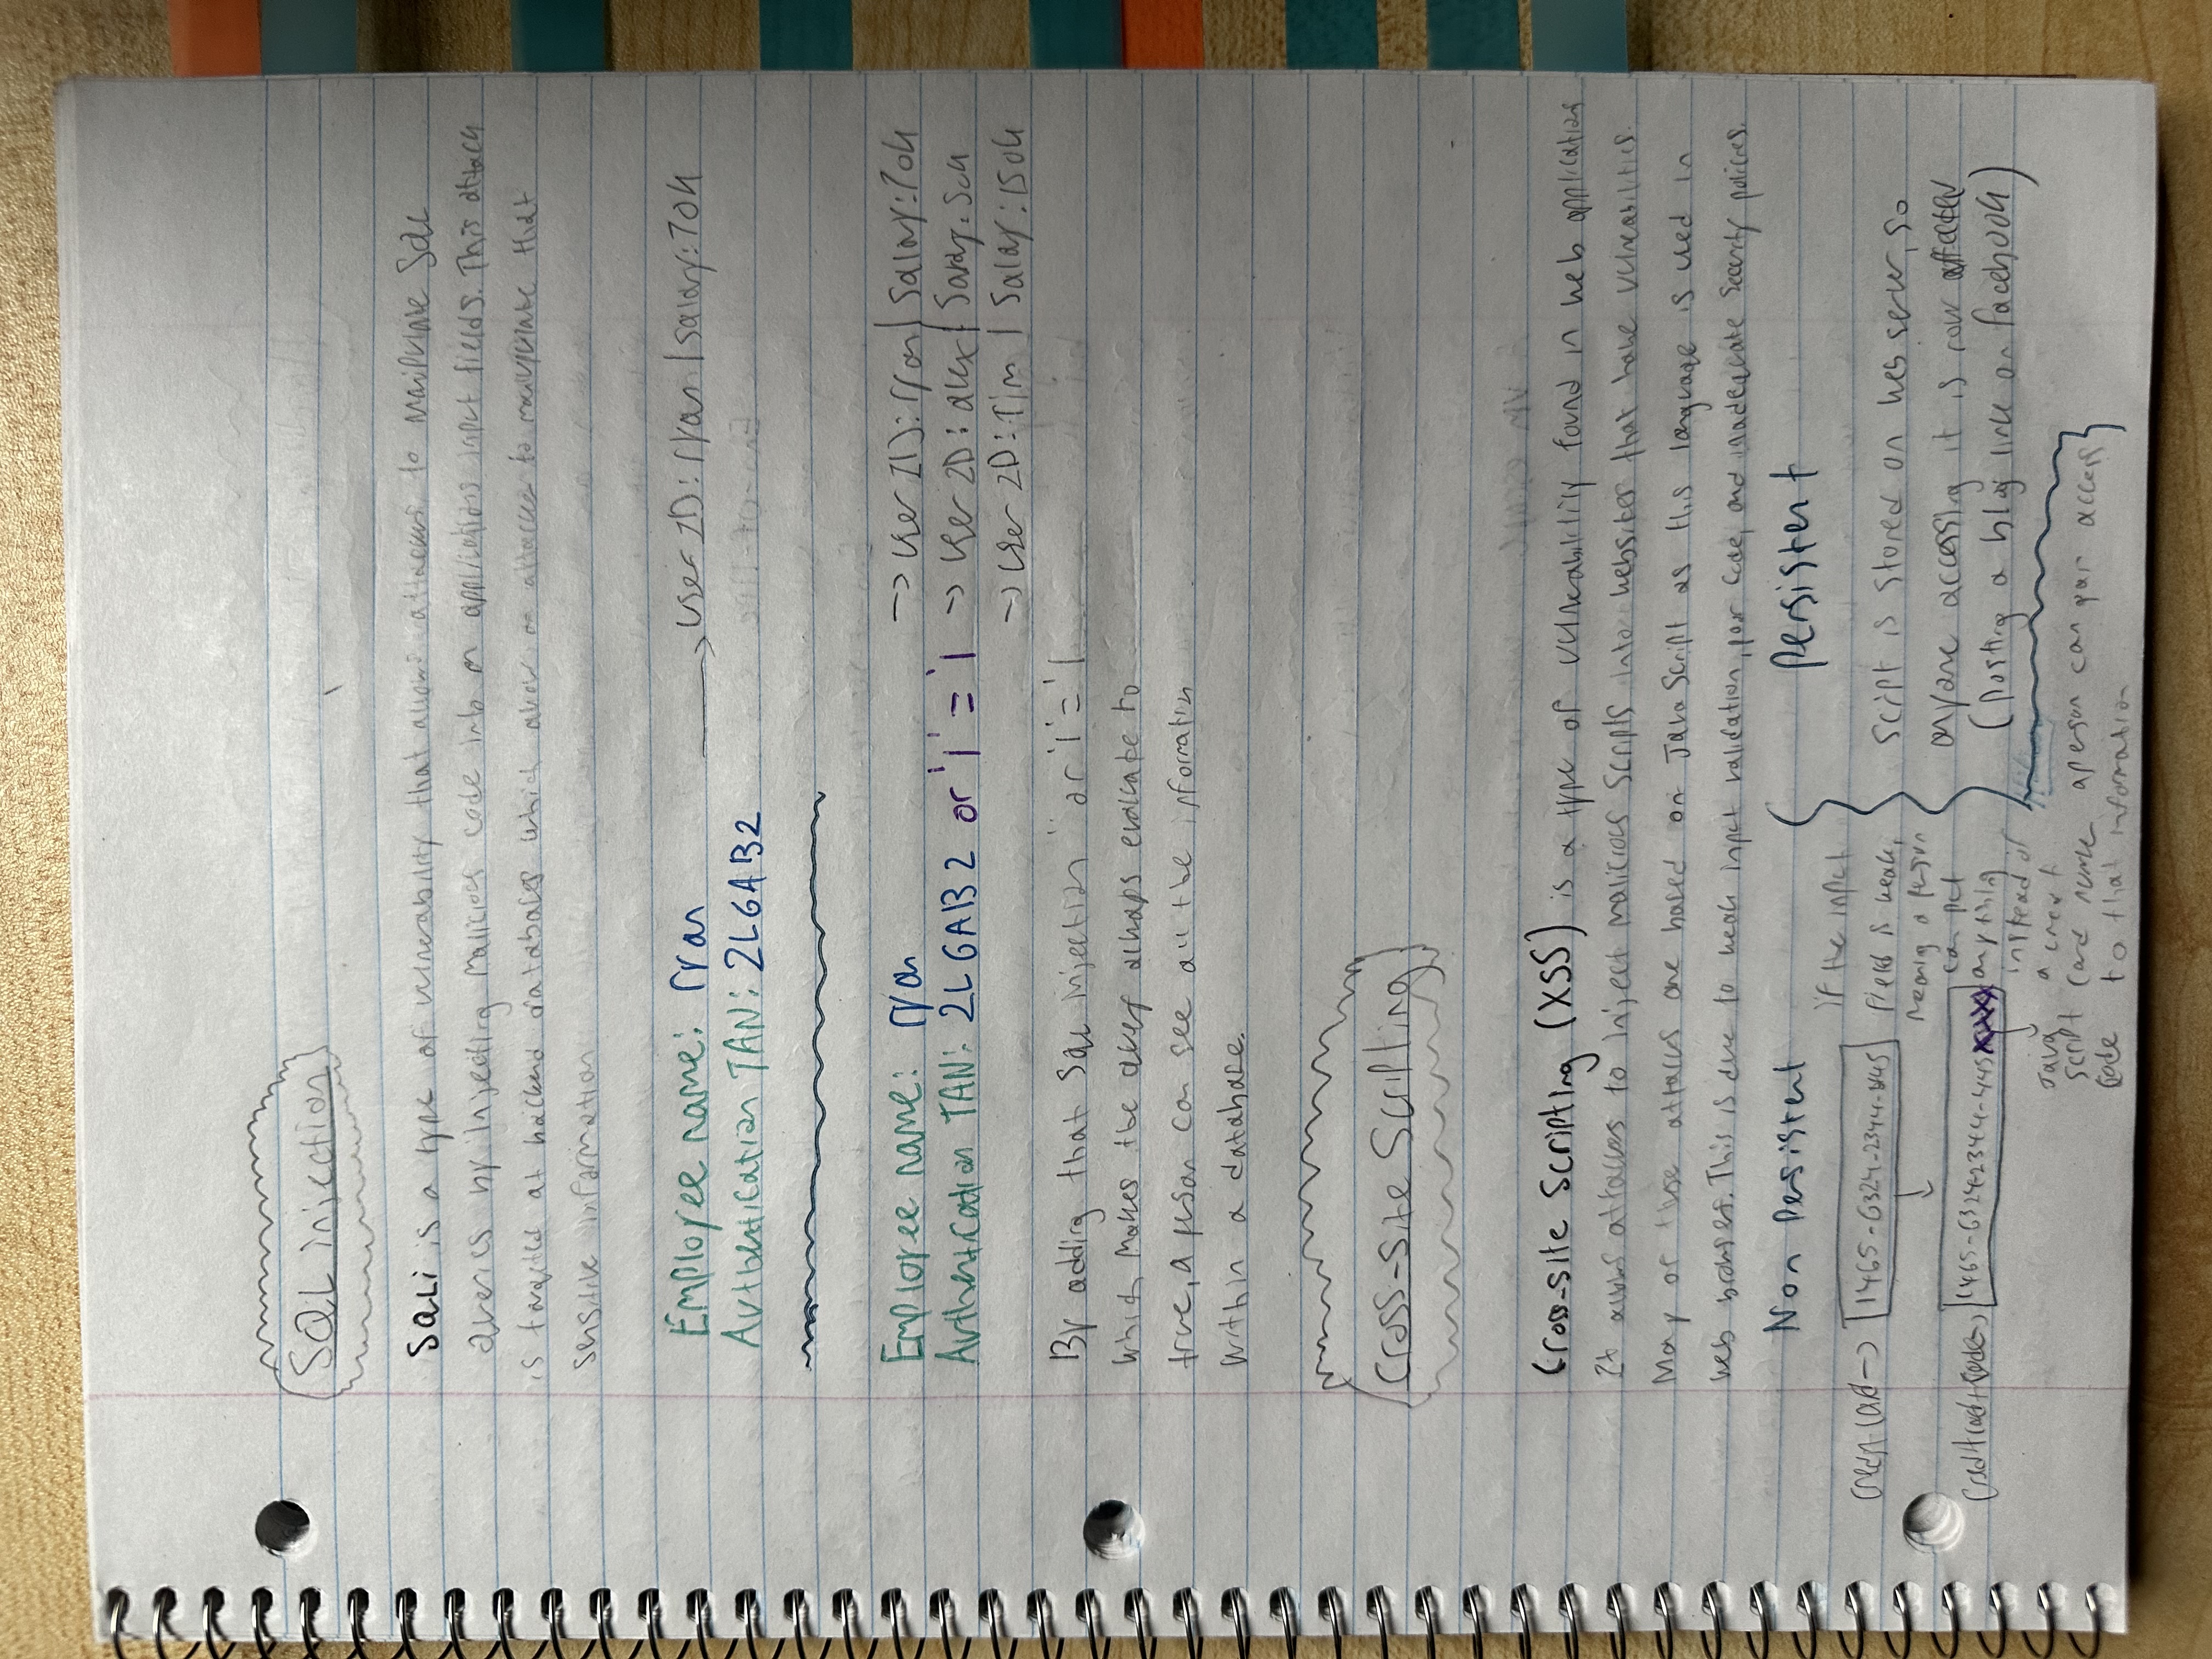 SQL injection
SQLi is a type of vulnerability that allows attackers to manipulate SQL
queries by injecting malicious code into an applications input fields. This attack
is targeted at backend databases which allow an attacker to manipulate that
sensitive information
Employee name: ryan → User ID: ryan | Salary: 70k
Authentication TAN: 2LGAB2
Employee name: ryan → User ID: ryan | Salary: 70k
Authentication TAN: 2LGAB2 or '1' = '1 → User ID: alex | Salary: 50k
→ User ID: Tim | Salary: 150k
By adding that SQL injection " or '1' = '1
which makes the query always evaluate to
true, a person can see all the information
within a database.
Cross-site Scripting
Cross-site Scripting (XSS) is a type of vulnerability found in web applications
It allows attackers to inject malicious scripts into websites that have vulnerabilities.
Many of these attacks are based on JavaScript as this language is used in
web browsers. This is due to weak input validation, poor code, and inadequate security policies.
Non Persistent
credit card → 1465-6324-2344-4445
credit card + code → 1465-6324-2344-445xxx
Java
script
code
if the input
field is weak,
meaning a person
can put
anything
instead of
a credit
card number a person can gain access
to that information
Persistent
script is stored on web server, so
anyone accessing it is now affected
(posting a blog link on facebook)